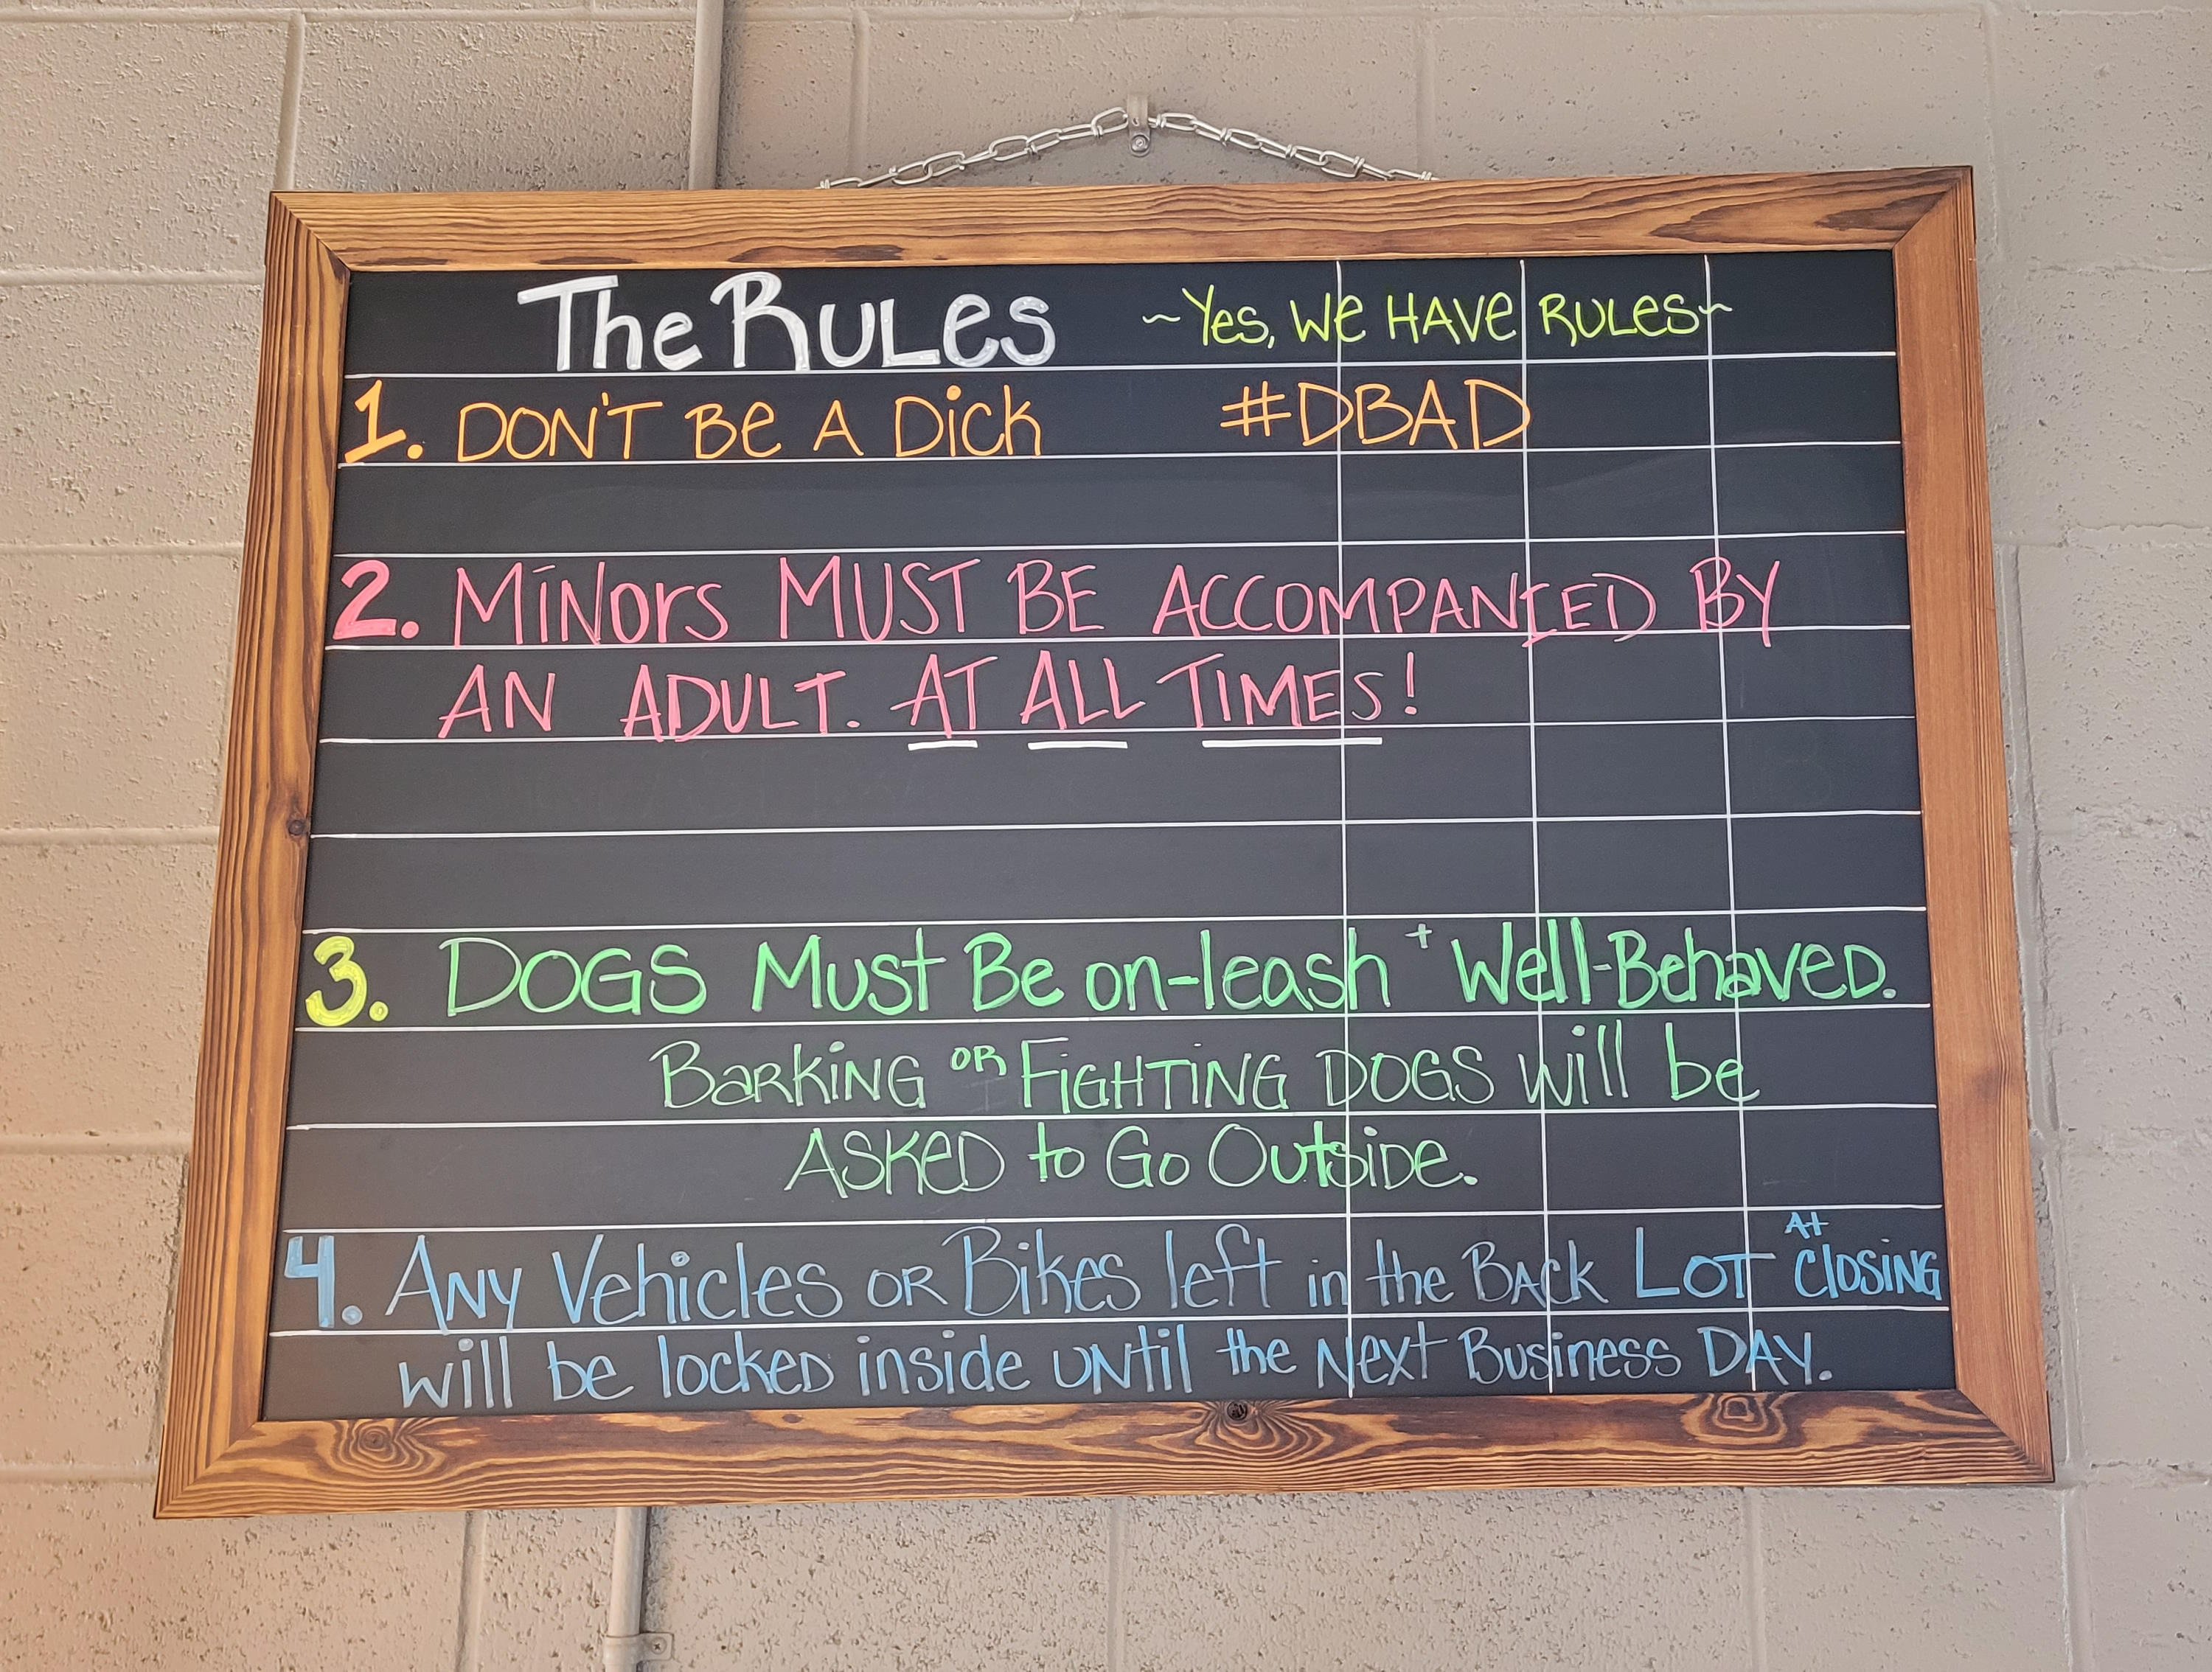 The RULes ~Yes, We HAVe RULes~
1. DON'T Be A Dick #DBAD
2. MiNOrs MUST BE ACCOMPANIED BY
AN ADULT. AT ALL TIMES!
3. DOGS Must Be on-leash + Well-Behaved.
BaRKiNG OR FiGHTiNG DOGS will be
ASKeD to Go OutsiDe.
4. ANy Vehicles OR Bikes left in the BACk LOT At ClOSiNG
will be lockeD inside UNtil the Next Business DAY.